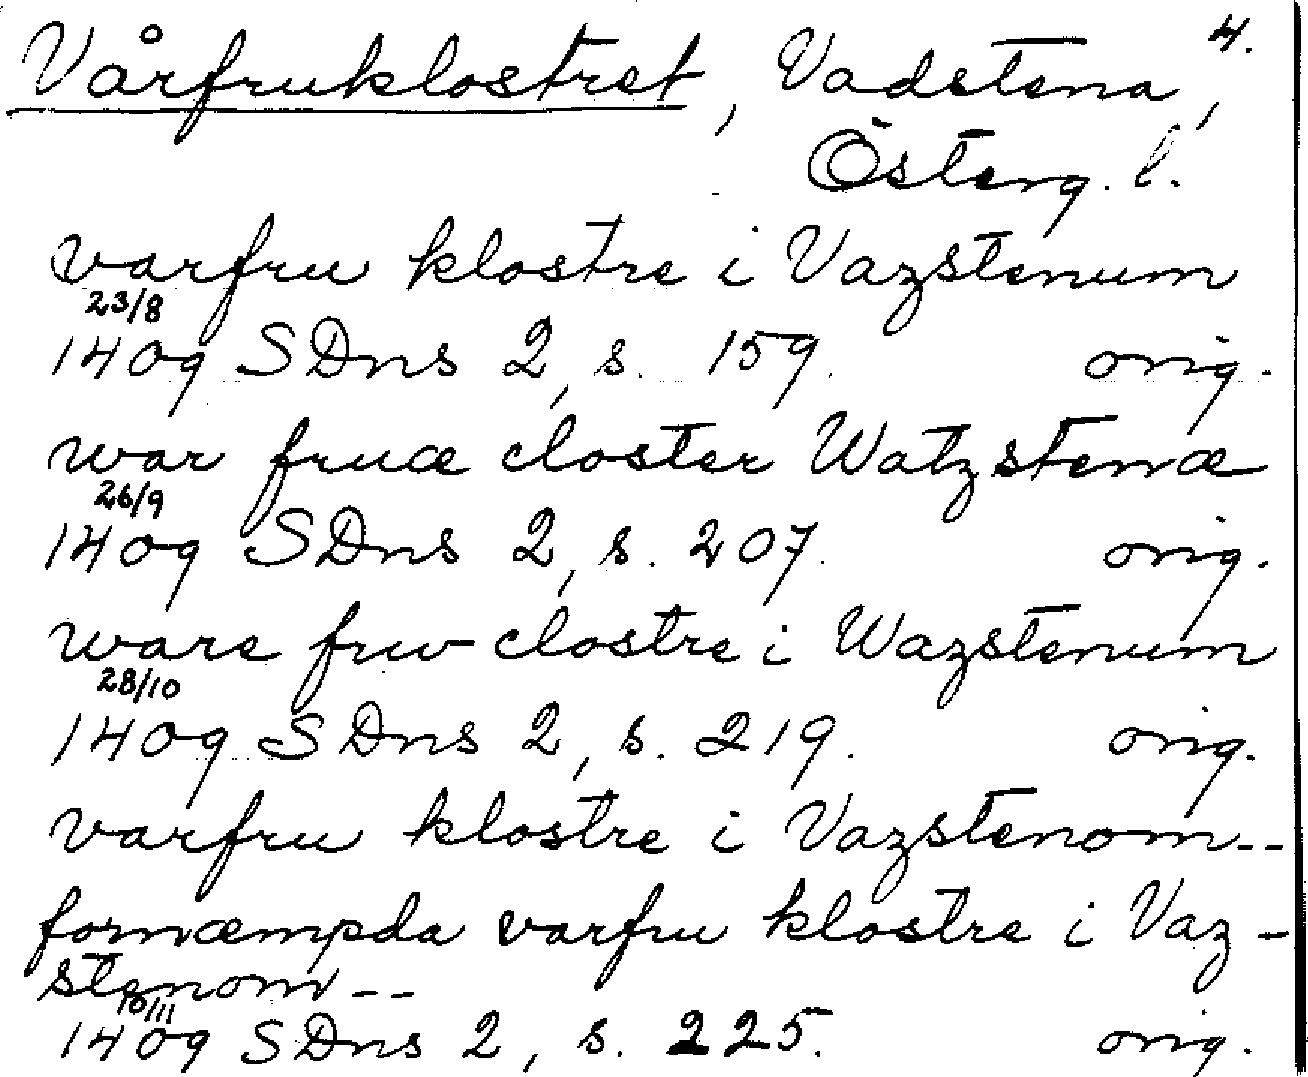 Vårfruklostret, Vadstena, 4.
Österg. l.
varfru klostre i Vazstenum
23/8
1409 SDns 2, s. 159. orig.
war fruæ closter Watzstenæ
26/9
1409 SDns 2, s. 207. orig.
ware frw clostre i Wazstenum
28/10
1409 SDns 2, s. 219. orig.
varfru klostre i Vazstenom--
fornæmpda varfru klostre i Vaz-
stenom--
10/11
1409 SDns 2, s. 225. orig.